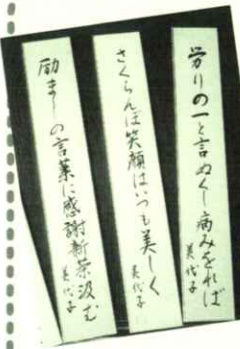 労りの一と言ぬくし病みをれば
美代子
さくらんぼ笑顔はいつも美しく
美代子
励ましの言葉に感謝新茶汲む
美代子